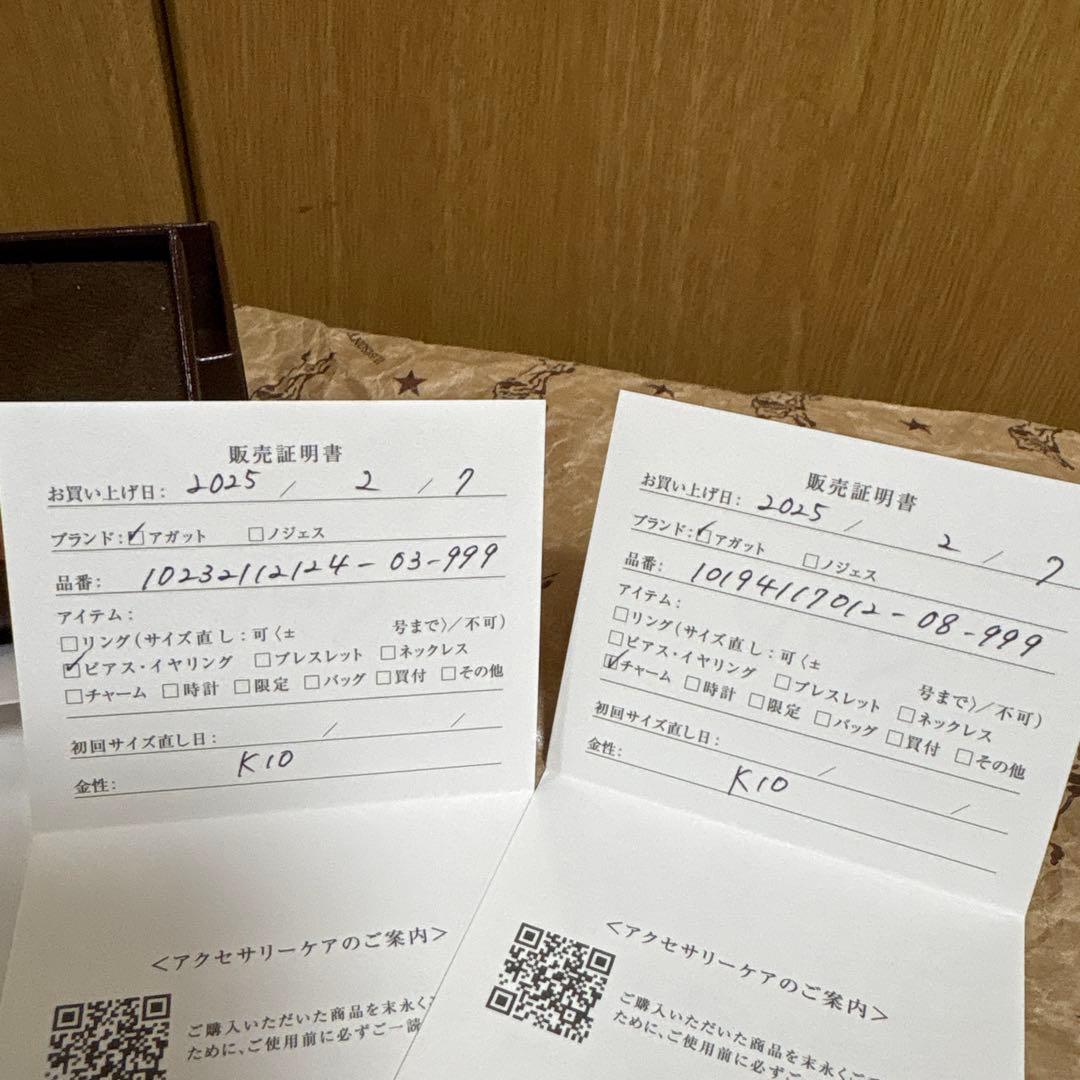 販売証明書
お買い上げ日: 2025 / 2 / 7
ブランド: ☑アガット □ノジェス
品番: 10232112124-03-999
アイテム:
□リング(サイズ直し:可〈± 号まで〉/不可)
☑ピアス・イヤリング □ブレスレット □ネックレス
□チャーム □時計 □限定 □バッグ □買付 □その他
初回サイズ直し日: / /
金性: K10
<アクセサリーケアのご案内>
ご購入いただいた商品を末永く
ために、ご使用前に必ずご一読
販売証明書
お買い上げ日: 2025 / 2 / 7
ブランド: ☑アガット □ノジェス
品番: 10194117012-08-999
アイテム:
□リング(サイズ直し:可〈± 号まで〉/不可)
□ピアス・イヤリング □ブレスレット □ネックレス
☑チャーム □時計 □限定 □バッグ □買付 □その他
初回サイズ直し日: / /
金性: K10
<アクセサリーケアのご案内>
ご購入いただいた商品を末永くご
ために、ご使用前に必ずご一